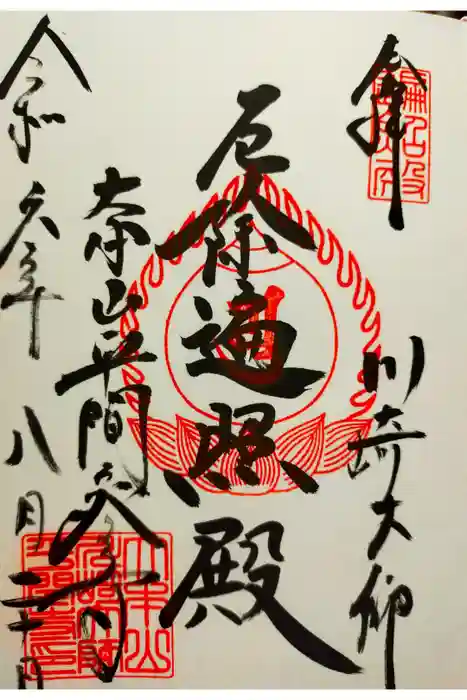 奉拝
川崎大師
厄除遍照殿
大本山平間寺
令和六年八月二十日